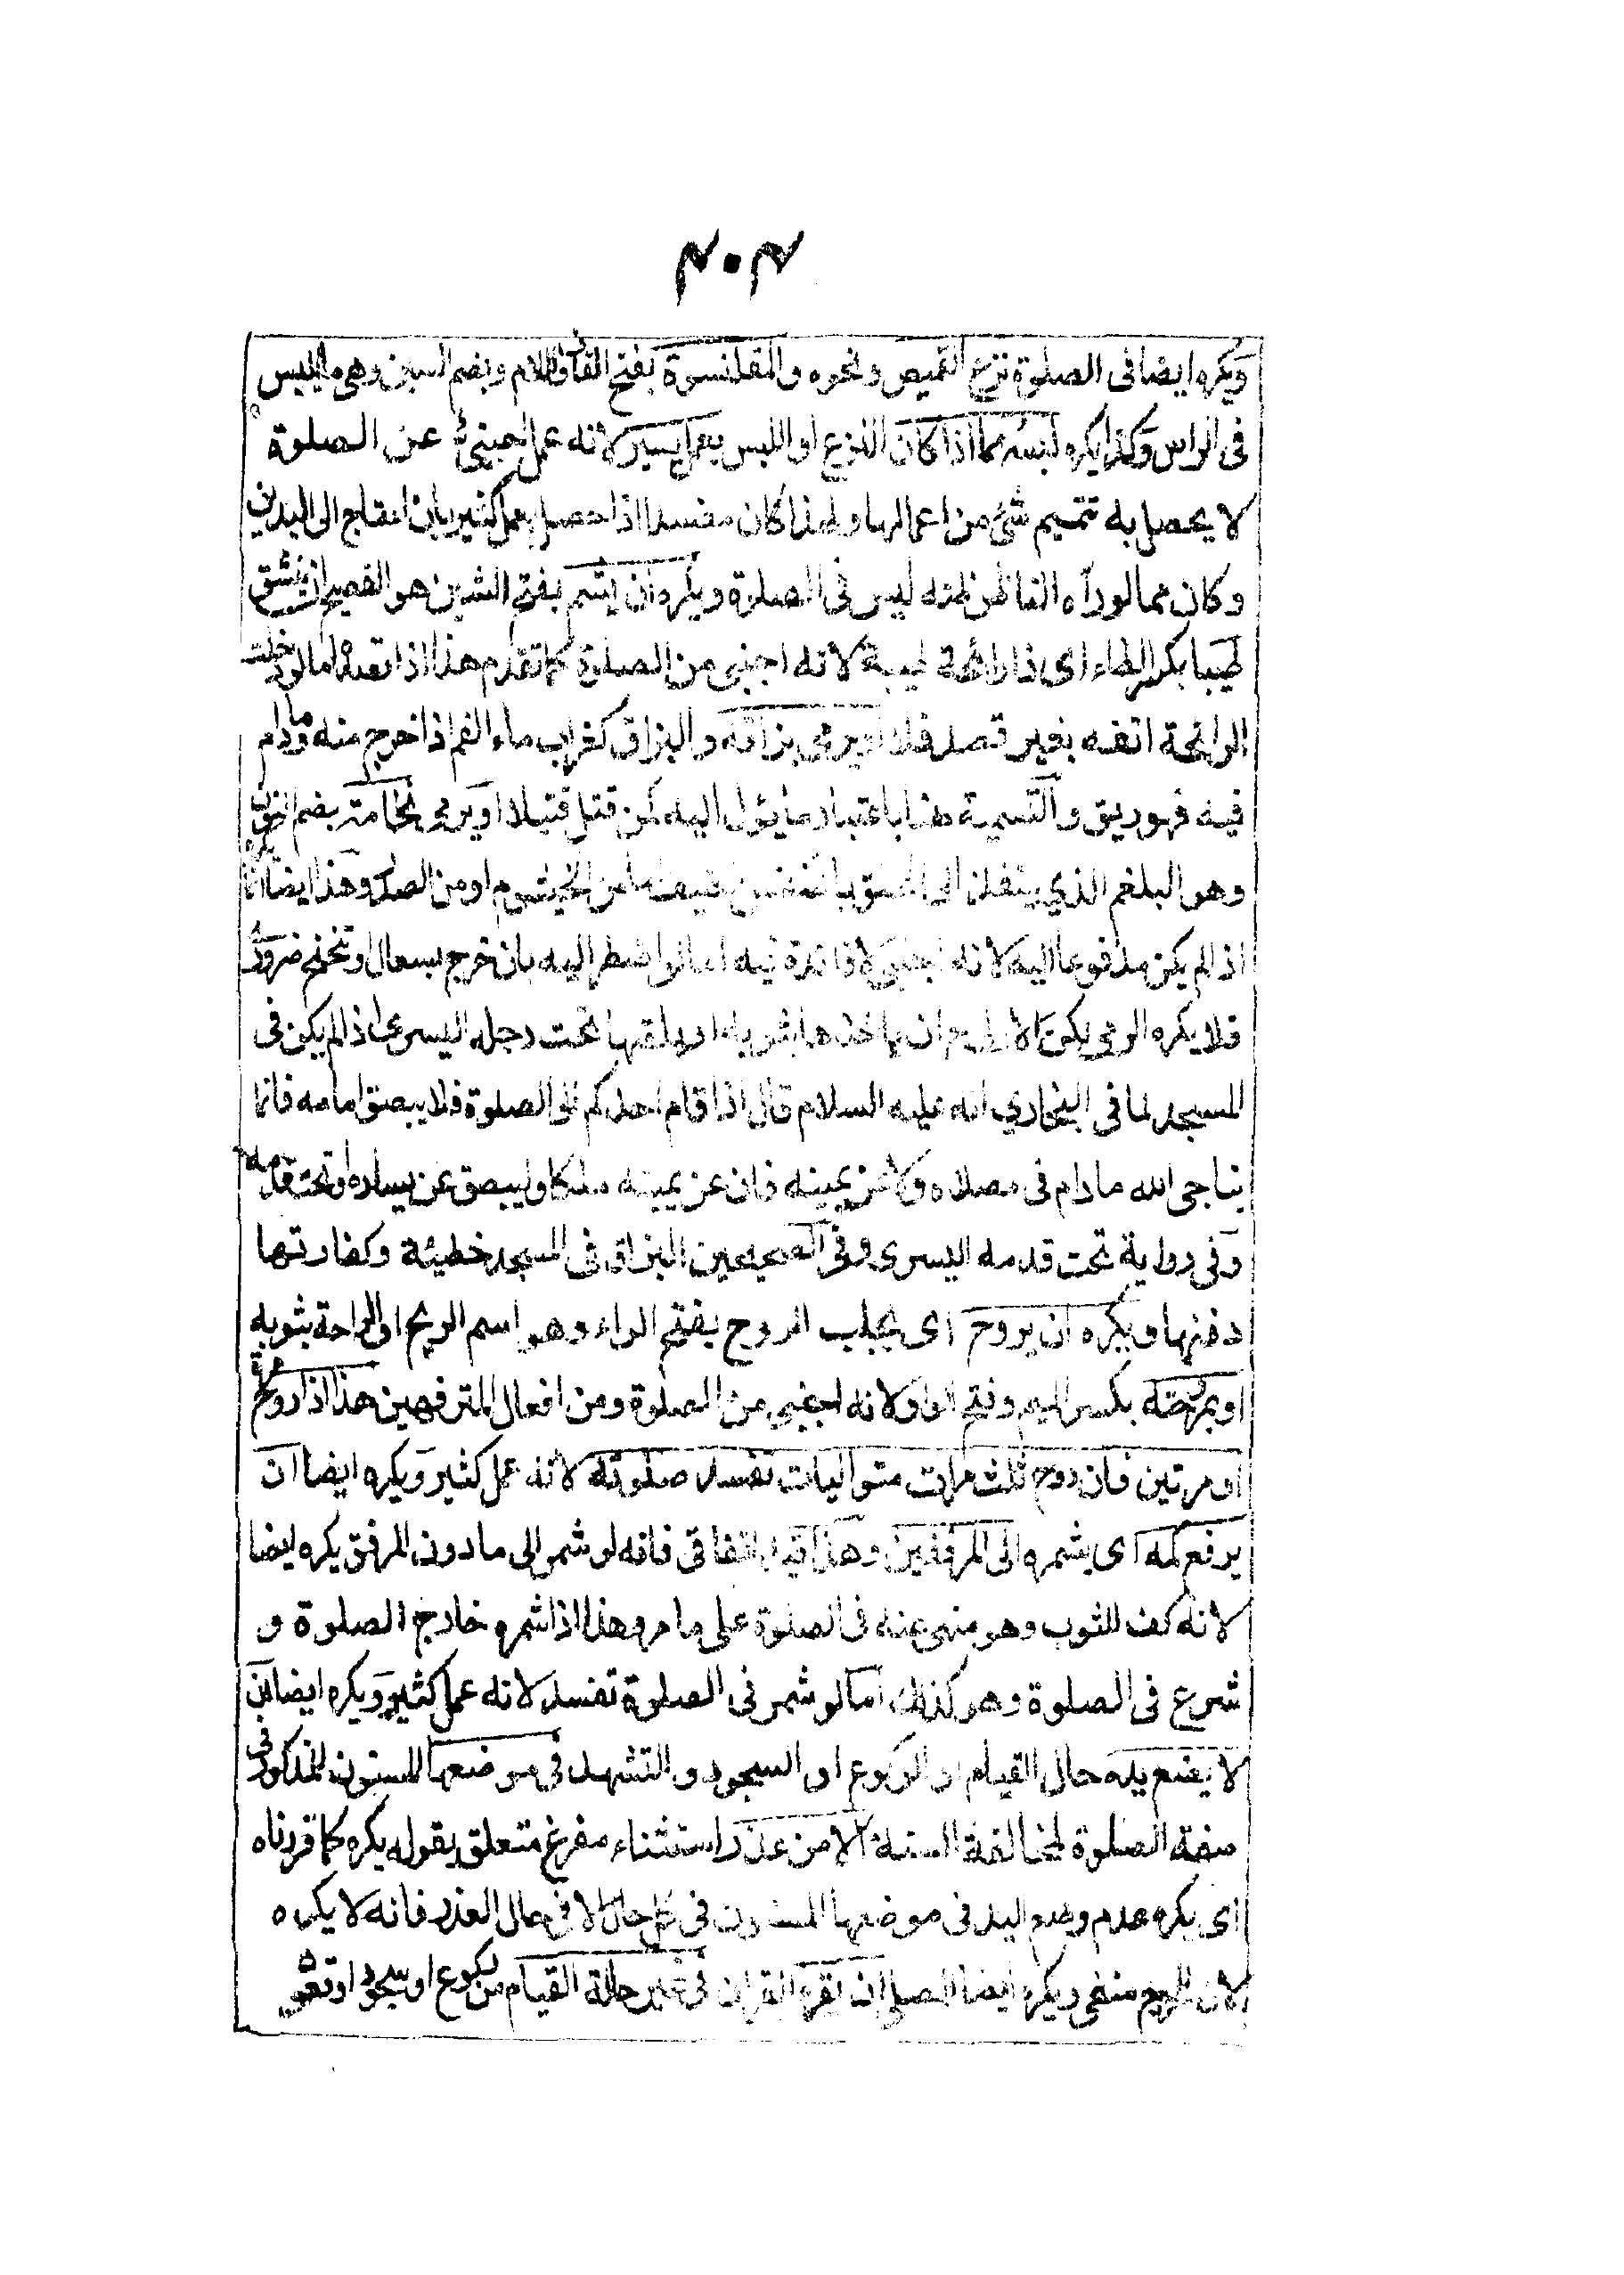 ٣٠٣
ويكره ايضا فى الصلوة نزع القميص ونحوه والقلنسوة بفتح القاف واللام وبضم السين وهى ما يلبس
فى الراس وكذا يكره لبسه مما اذا كان النزع او اللبس بعمل يسير لانه عمل اجنبى عن الصلوة
لا يحصل به تتميم شئ من اعمالها ولهذا كان مفسدا اذا حصل بعمل كثير بان احتاج الى اليدين
وكان مما لو رآه الناظر ظنه ليس فى الصلوة ويكره ان يشم بفتح الشين هو الفصيح اى ينشق
طيبا بكسر الطاء اى ذا رائحة طيبة لانه اجنبى من الصلوة كما تقدم هذا اذا تعمده اما لو دخلت
الرائحة انفه بغير قصد فلا او يرمى بزاقه والبزاق كغراب ماء الفم اذا خرج منه وما دام
فيه فهو ريق والتسمية هنا باعتبار ما يئول اليه كمن قتل قتيلا او يرمى نخامته بضم النون
وهو البلغم الذي ينفذ الى الحلق بالتنفس من الخيشوم او من الصدر وهذا ايضا انما يكره
اذا لم يكن مدفوعا اليه لانه اجنبى لا فائدة فيه اما لو اضطر اليه بان خرج بسعال او تنحنح ضرورى
فلا يكره الرمى لكن الاولى ان ياخذها بثوبه او يلقيها تحت رجله اليسرى اذا لم يكن فى
المسجد لما فى البخاري انه عليه السلام قال اذا قام احدكم الى الصلوة فلا يبصق امامه فانما
يناجى الله ما دام فى مصلاه ولا عن يمينه فان عن يمينه ملكا وليبصق عن يساره او تحت قدمه
وفى رواية تحت قدمه اليسرى وفى الصحيحين البزاق فى المسجد خطيئة وكفارتها
دفنها ويكره ان يروح اى يجلب الروح بفتح الراء وهو اسم الريح او الراحة بثوبه
او بمروحته بكسر الميم وفتح الواو لانه اجنبى من الصلوة ومن افعال المترفهين هذا اذا روح مرة
او مرتين فان روح ثلث مرات متواليات تفسد صلوته لانه عمل كثير ويكره ايضا ان
يرفع كمه اى يشمره الى المرفقين وهذا قيد اتفاقى فانه لو شمر الى ما دون المرفق يكره ايضا
لانه كف للثوب وهو منهى عنه فى الصلوة على ما مر وهذا اذا شمره خارج الصلوة و
شرع فى الصلوة وهو كذلك اما لو شمر فى الصلوة تفسد لانه عمل كثير ويكره ايضا ان
لا يضع يده حال القيام او الركوع او السجود والتشهد فى موضعها المسنون المذكور فى
صفة الصلوة لمخالفة السنة الا من عذر استثناء مفرغ متعلق بقوله يكره كما قررناه
اى يكره عدم وضع اليد فى موضعها المسنون فى كل حال الا فى حال العذر فانه لا يكره
لان المبيح منفى ويكره ايضا للمصلى ان يقرء القران فى غير حالة القيام من ركوع او سجود او تشهد